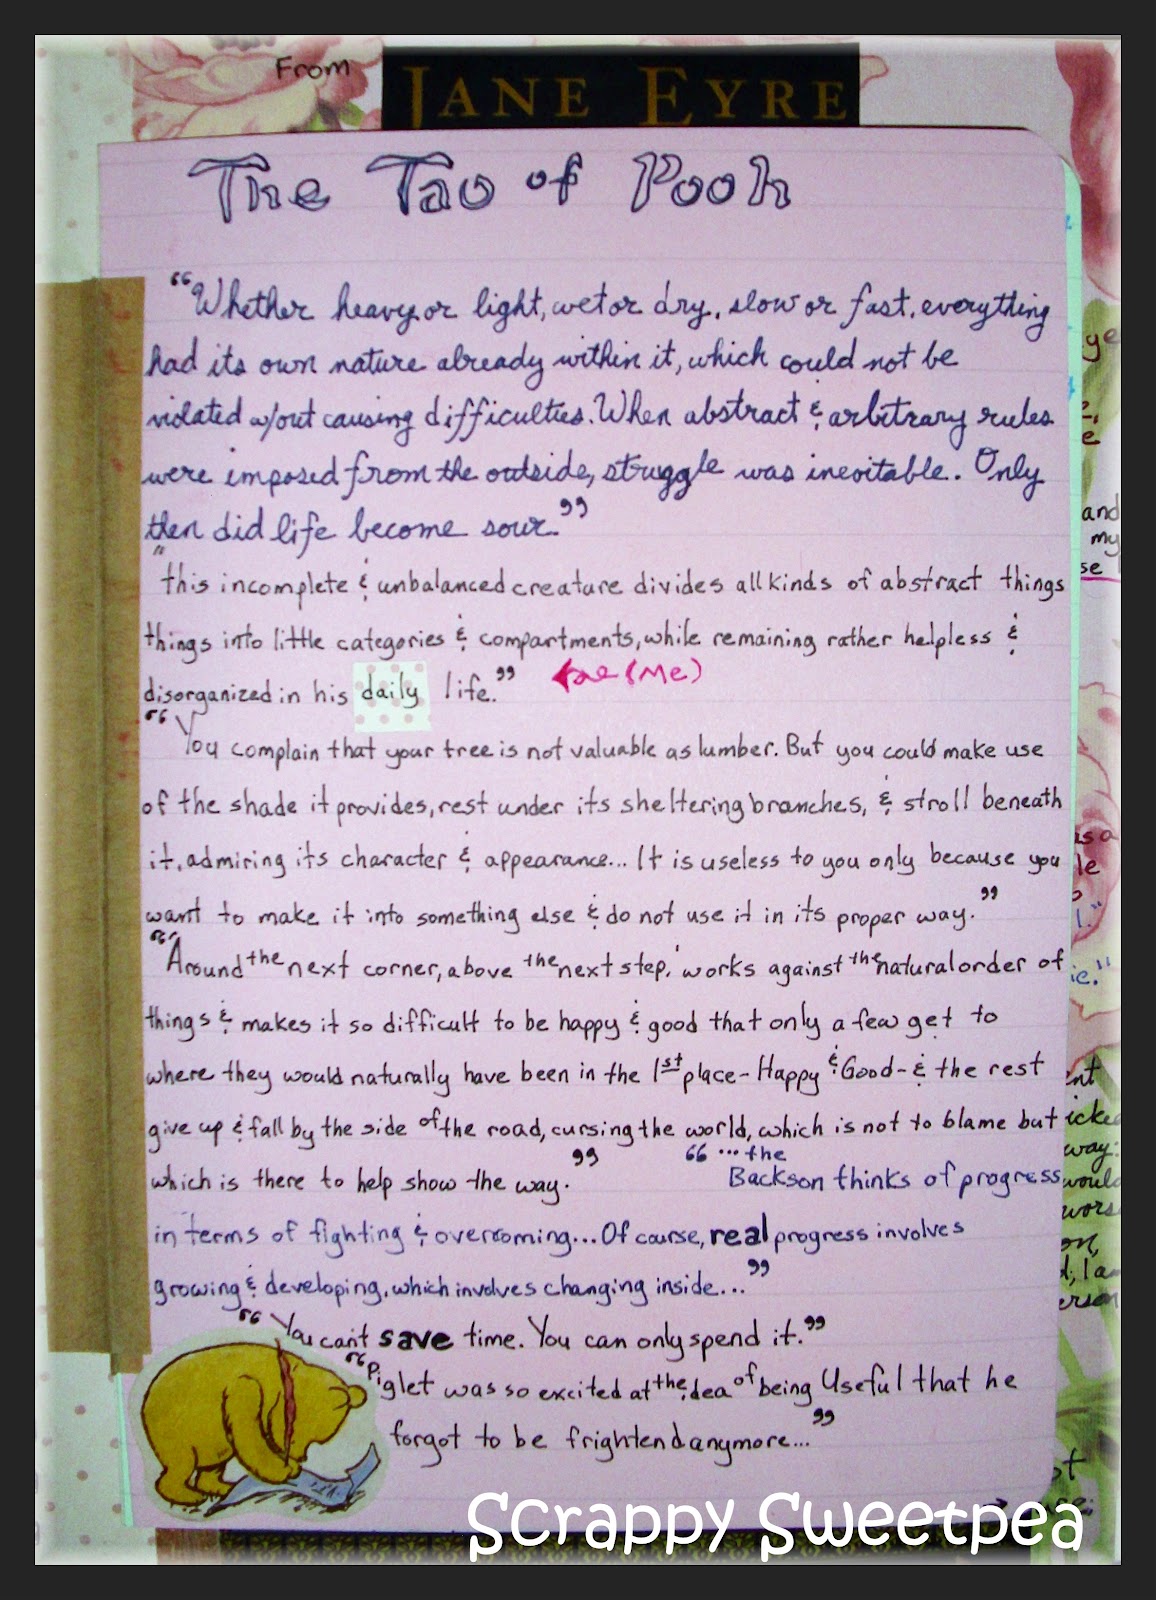 From
JANE EYRE
The Tao of Pooh
"Whether heavy or light, wet or dry, slow or fast, everything
had its own nature already within it, which could not be
violated w/out causing difficulties. When abstract & arbitrary rules
were imposed from the outside, struggle was inevitable. Only
then did life become sour."
"this incomplete & unbalanced creature divides all kinds of abstract things
things into little categories & compartments, while remaining rather helpless &
disorganized in his daily life." (Me)
"You complain that your tree is not valuable as lumber. But you could make use
of the shade it provides, rest under its sheltering branches, & stroll beneath
it, admiring its character & appearance... It is useless to you only because you
want to make it into something else & do not use it in its proper way."
"'Around the next corner, above the next step,' works against the natural order of
things & makes it so difficult to be happy & good that only a few get to
where they would naturally have been in the 1st place - Happy & Good - & the rest
give up & fall by the side of the road, cursing the world, which is not to blame but
which is there to help show the way."
"...the
Backson thinks of progress
in terms of fighting & overcoming... Of course, real progress involves
growing & developing, which involves changing inside..."
"You can't save time. You can only spend it."
"Piglet was so excited at the idea of being Useful that he
forgot to be frightend anymore..."
and
my
se
way:
would
Scrappy Sweetpea